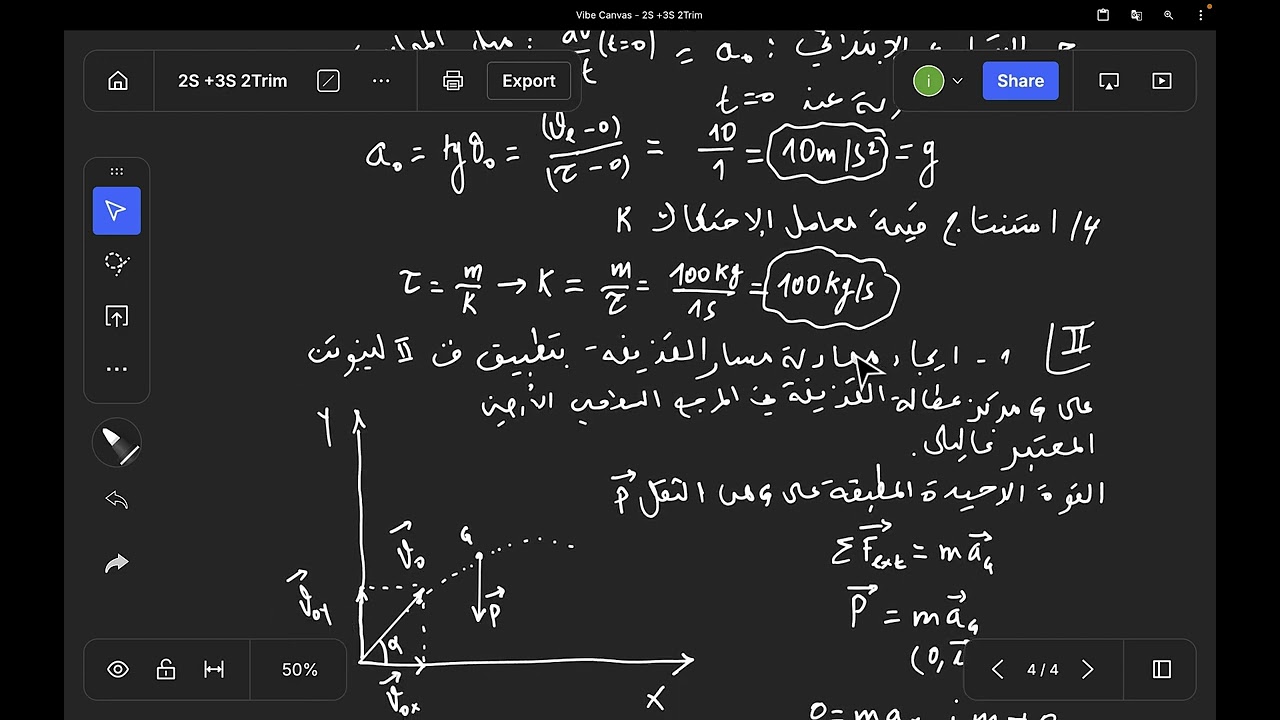 Vibe Canvas - 2S +3S 2Trim
2S +3S 2Trim
Export
Share
: a₀ = (t=0)
عند t=0
a₀ = tgθ₀ = (v_ℓ - 0)/(τ - 0) = 10/1 = 10m/s² = g
4/ استنتاج قيمة معامل الإحتكاك K
τ = m/K → K = m/τ = 100kg/1s = 100kg/s
II 1 - ايجاد معادلة مسار القذيفة - بتطبيق ق II لنيوتن
على G مركز عطالة القذيفة في المرجع السطحي الأرضي
المعتبر غاليلي.
القوة الوحيدة المطبقة على G هي الثقل P⃗
ΣF⃗ext = m a⃗G
P⃗ = m a⃗G
Y
v⃗₀
G
v⃗₀y
P⃗
α
v⃗₀x
X
50%
4/4